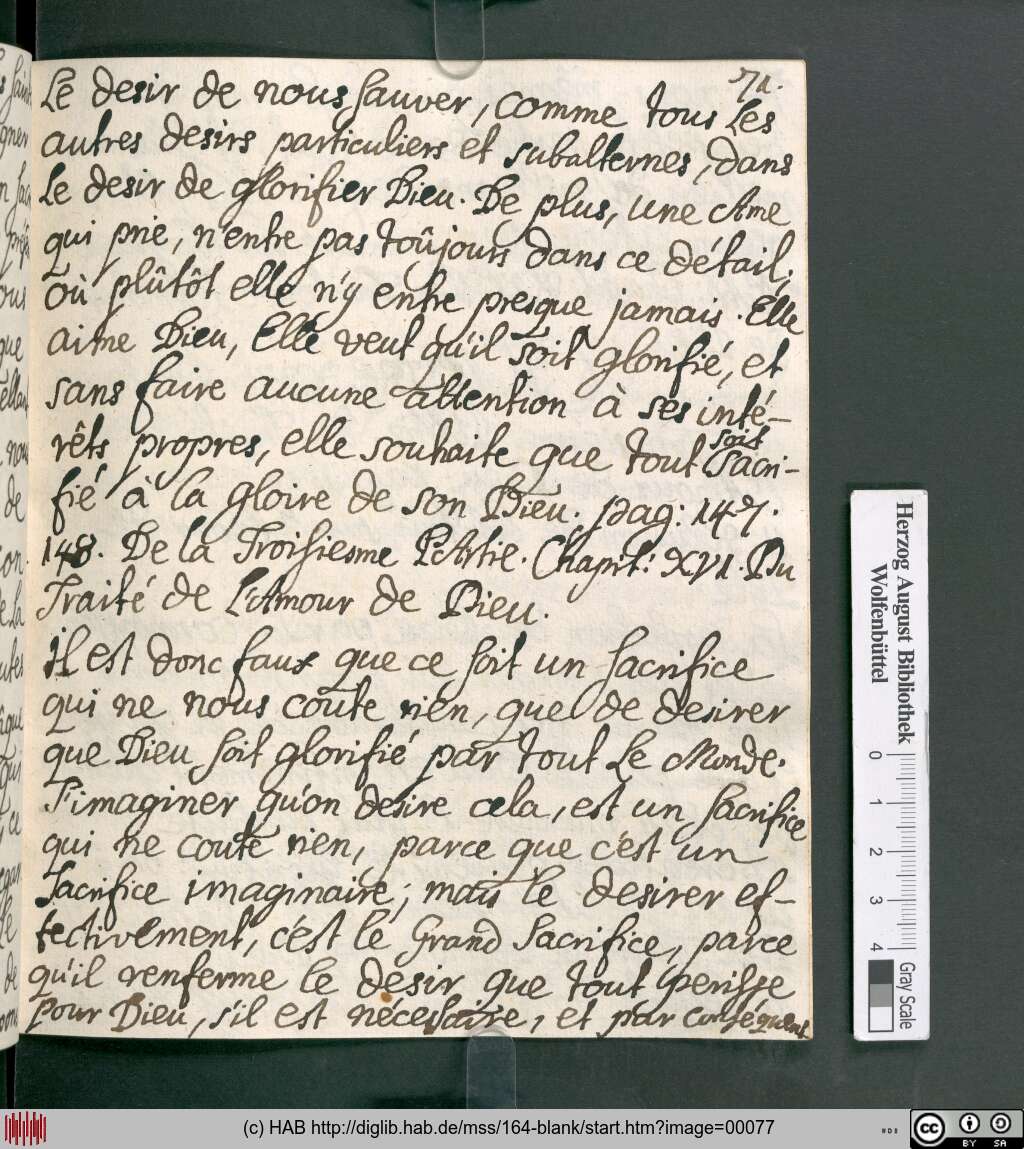 71.
Le desir de nous sauver, comme tous les
autres desirs particuliers et subalternes, dans
le desir de glorifier Dieu. De plus, une Ame
qui prie, n'entre pas toûjours dans ce détail;
où plûtôt elle n'y entre presque jamais. Elle
aime Dieu, Elle veut qu'il soit glorifié, et
sans faire aucune attention à ses inté-
rêts propres, elle souhaite que tout soit sacri-
fié à la gloire de son Dieu. pag: 147.
148. De la Troisiesme Partie. Chapit: XVI. Du
Traité de L'Amour de Dieu.
il est donc faux que ce soit un sacrifice
qui ne nous coute rien, que de desirer
que Dieu soit glorifié par tout le Monde.
S'imaginer qu'on desire cela, est un sacrifice
qui ne coute rien, parce que c'est un
sacrifice imaginaire; mais le desirer ef-
fectivement, c'est le Grand Sacrifice, parce
qu'il renferme le desir que tout perisse
pour Dieu, s'il est nécessaire, et par conséquent
Herzog August Bibliothek
Wolfenbüttel
0 1 2 3 4
Gray Scale
(c) HAB http://diglib.hab.de/mss/164-blank/start.htm?image=00077
cc BY SA